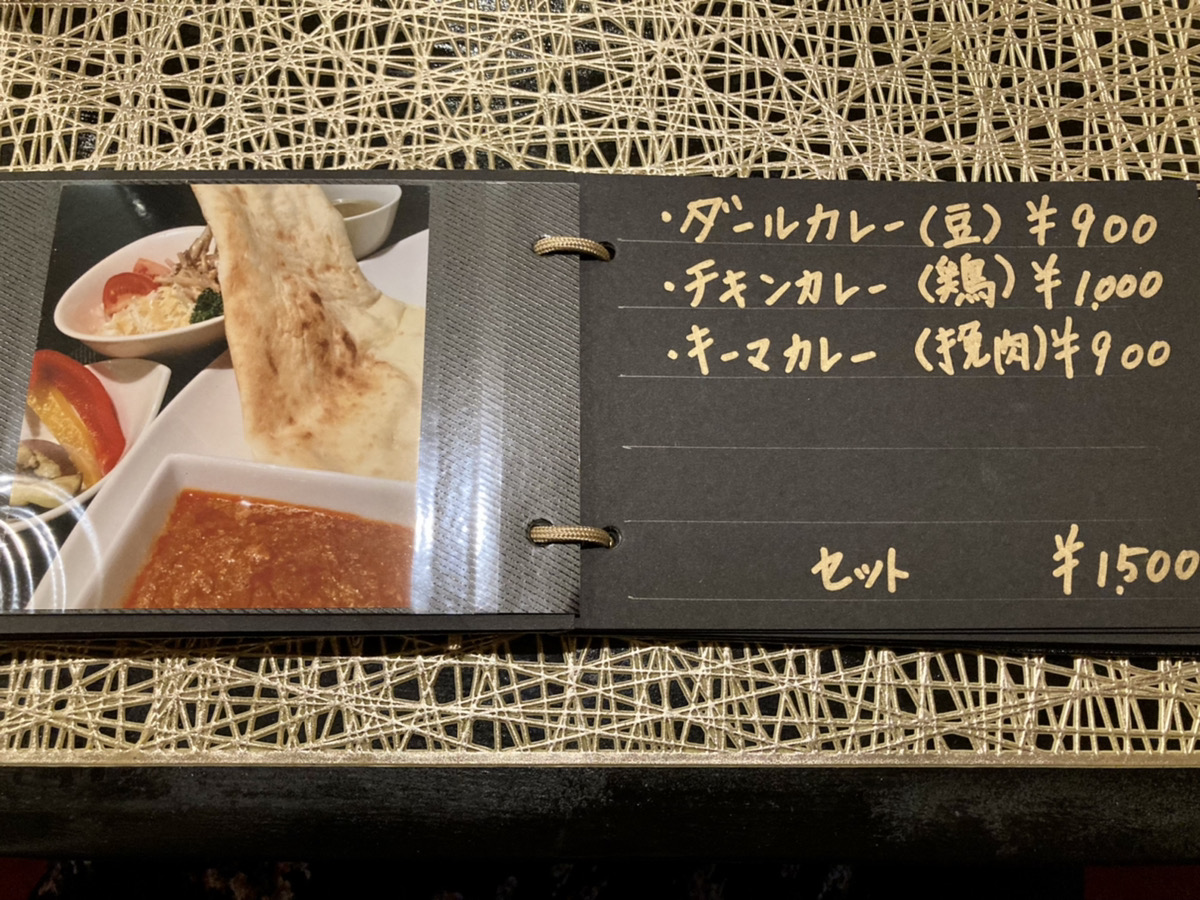 ・ダールカレー(豆) ¥900
・チキンカレー (鶏) ¥1,000
・キーマカレー (挽肉)¥900
セット ¥1,500